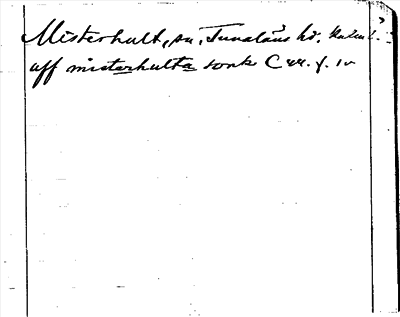 Misterhult, sn, Tunaläns hd. Kalm l.
aff misterhulta sonk C 44. f. 10